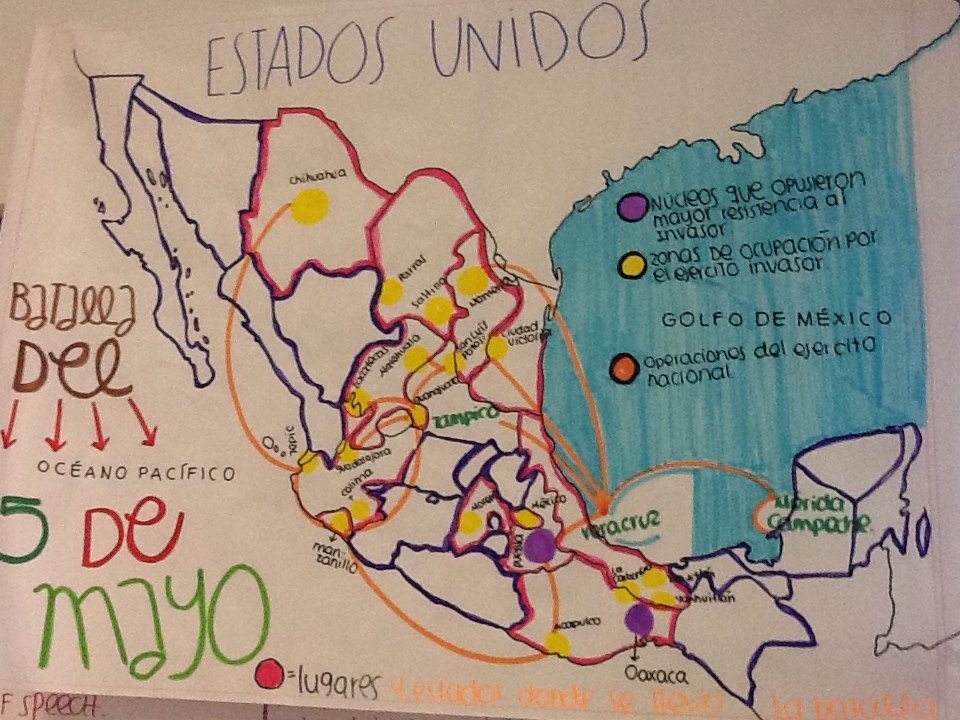 ESTADOS UNIDOS
Chihuahua
NÚCLEOS QUE OPUSIERON
mayor resistencia al
INVASOR
zonas de ocupación por
el ejercito invasor
GOLFO DE MÉXICO
Operaciones del ejercito
nacional
Parral
Saltillo
Ciudad
Victoria
San Luis
Potosí
Matehuala
Zacatecas
Guanajuato
Tampico
BATALLA
DEL
OCÉANO PACÍFICO
5 DE
mayo
Tepic
Guadalajara
Colima
man-
zanillo
Morelia
México
Puebla
Veracruz
Mérida
Campache
La
Carbonera
Yanhuitlán
Acapulco
Oaxaca
=lugares y estados donde se llevo la batalla
F SPEECH.